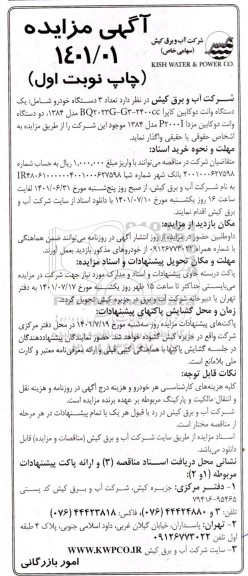 شرکت آب و برق کیش
(سهامی خاص)
KISH WATER & POWER CO.
آگهی مزایده
۱۴۰۱/۰۱
(چاپ نوبت اول)
شرکت آب و برق کیش در نظر دارد تعداد ۳ دستگاه خودرو شامل: یک
دستگاه وانت دوکابین کاپرا BQ۲۰۲۳G-G۳-۲۴۰۰cc مدل ۱۳۸۴، دو دستگاه
وانت دوکابین مزدا P۲۰۰۰I مدل ۱۳۸۴ موجود این شرکت را از طریق مزایده به
اشخاص حقوقی یا حقیقی واگذار نماید.
مهلت و نحوه خرید اسناد:
متقاضیان شرکت در مناقصه می‌توانند با واریز مبلغ ۱,۰۰۰,۰۰۰ ریال به حساب شماره
به نام شرکت آب و برق کیش، از صبح روز پنج‌شنبه مورخ ۱۴۰۱/۰۶/۳۱ لغایت
ساعت ۱۶ روز یکشنبه مورخ ۱۴۰۱/۰۷/۱۰ با دانلود اسناد از سایت شرکت آب و
برق کیش اقدام نمایند.
مکان بازدید از مزایده:
داوطلبین حضور در مزایده از روز انتشار آگهی در روزنامه می‌توانند ضمن هماهنگی
با شماره همراه از خودروهای مذکور بازدید بعمل آورند.
مهلت و مکان تحویل پیشنهادات و اسناد مزایده:
پاکت دربسته حاوی پیشنهادات و اسناد و مدارک مورد نیاز جهت شرکت در مزایده
می‌بایستی حداکثر تا ساعت ۱۵ ظهر روز یکشنبه مورخ ۱۴۰۱/۰۷/۱۷ به دفتر
تهران یا دبیرخانه شرکت آب و برق در جزیره کیش تحویل گردد.
زمان و محل گشایش پاکتهای پیشنهادات:
پاکت‌های پیشنهادات مزایده روز سه‌شنبه مورخ ۱۴۰۱/۷/۱۹ در محل دفتر مرکزی
شرکت واقع در جزیره کیش گشوده خواهد شد. حضور نمایندگان پیشنهاددهندگان
در جلسه گشایش پاکتها با هماهنگی کتبی قبلی و ارائه معرفی‌نامه معتبر و کارت
ملی بلامانع است.
نکات قابل توجه:
کلیه هزینه‌های کارشناسی هر خودرو و هزینه درج آگهی در روزنامه و هزینه نقل
و انتقال مالکیت و پارکینگ مربوطه بر عهده برنده مزایده است.
شرکت آب و برق کیش در رد یا قبول هر یک یا تمام پیشنهادات در هر مرحله
از مناقصه مختار است.
اسناد مزایده از طریق سایت شرکت آب و برق کیش (مناقصات و مزایده) قابل
دانلود می‌باشد.
نشانی محل دریافت اسناد مناقصه (۳) و ارائه پاکت پیشنهادات
مربوطه (۱ و ۲):
۱- دفتر مرکزی: جزیره کیش، شرکت آب و برق کیش کد پستی
۷۹۴۱۶-۹۵۴۶۵
تلفن: ۳ و ۴۴۴۲۴۴۸۰ (۰۷۶)، فاکس: ۴۴۴۲۳۸۱۸ (۰۷۶)
۲- تهران: پاسداران، خیابان گیلان غربی، داود اسلامی جنوبی، پلاک ۴ طبقه
اول تلفن ۰۹۱۲۶۷۷۳۰۲۲
۳- سایت شرکت آب و برق کیش WWW.KWPCO.IR
امور بازرگانی